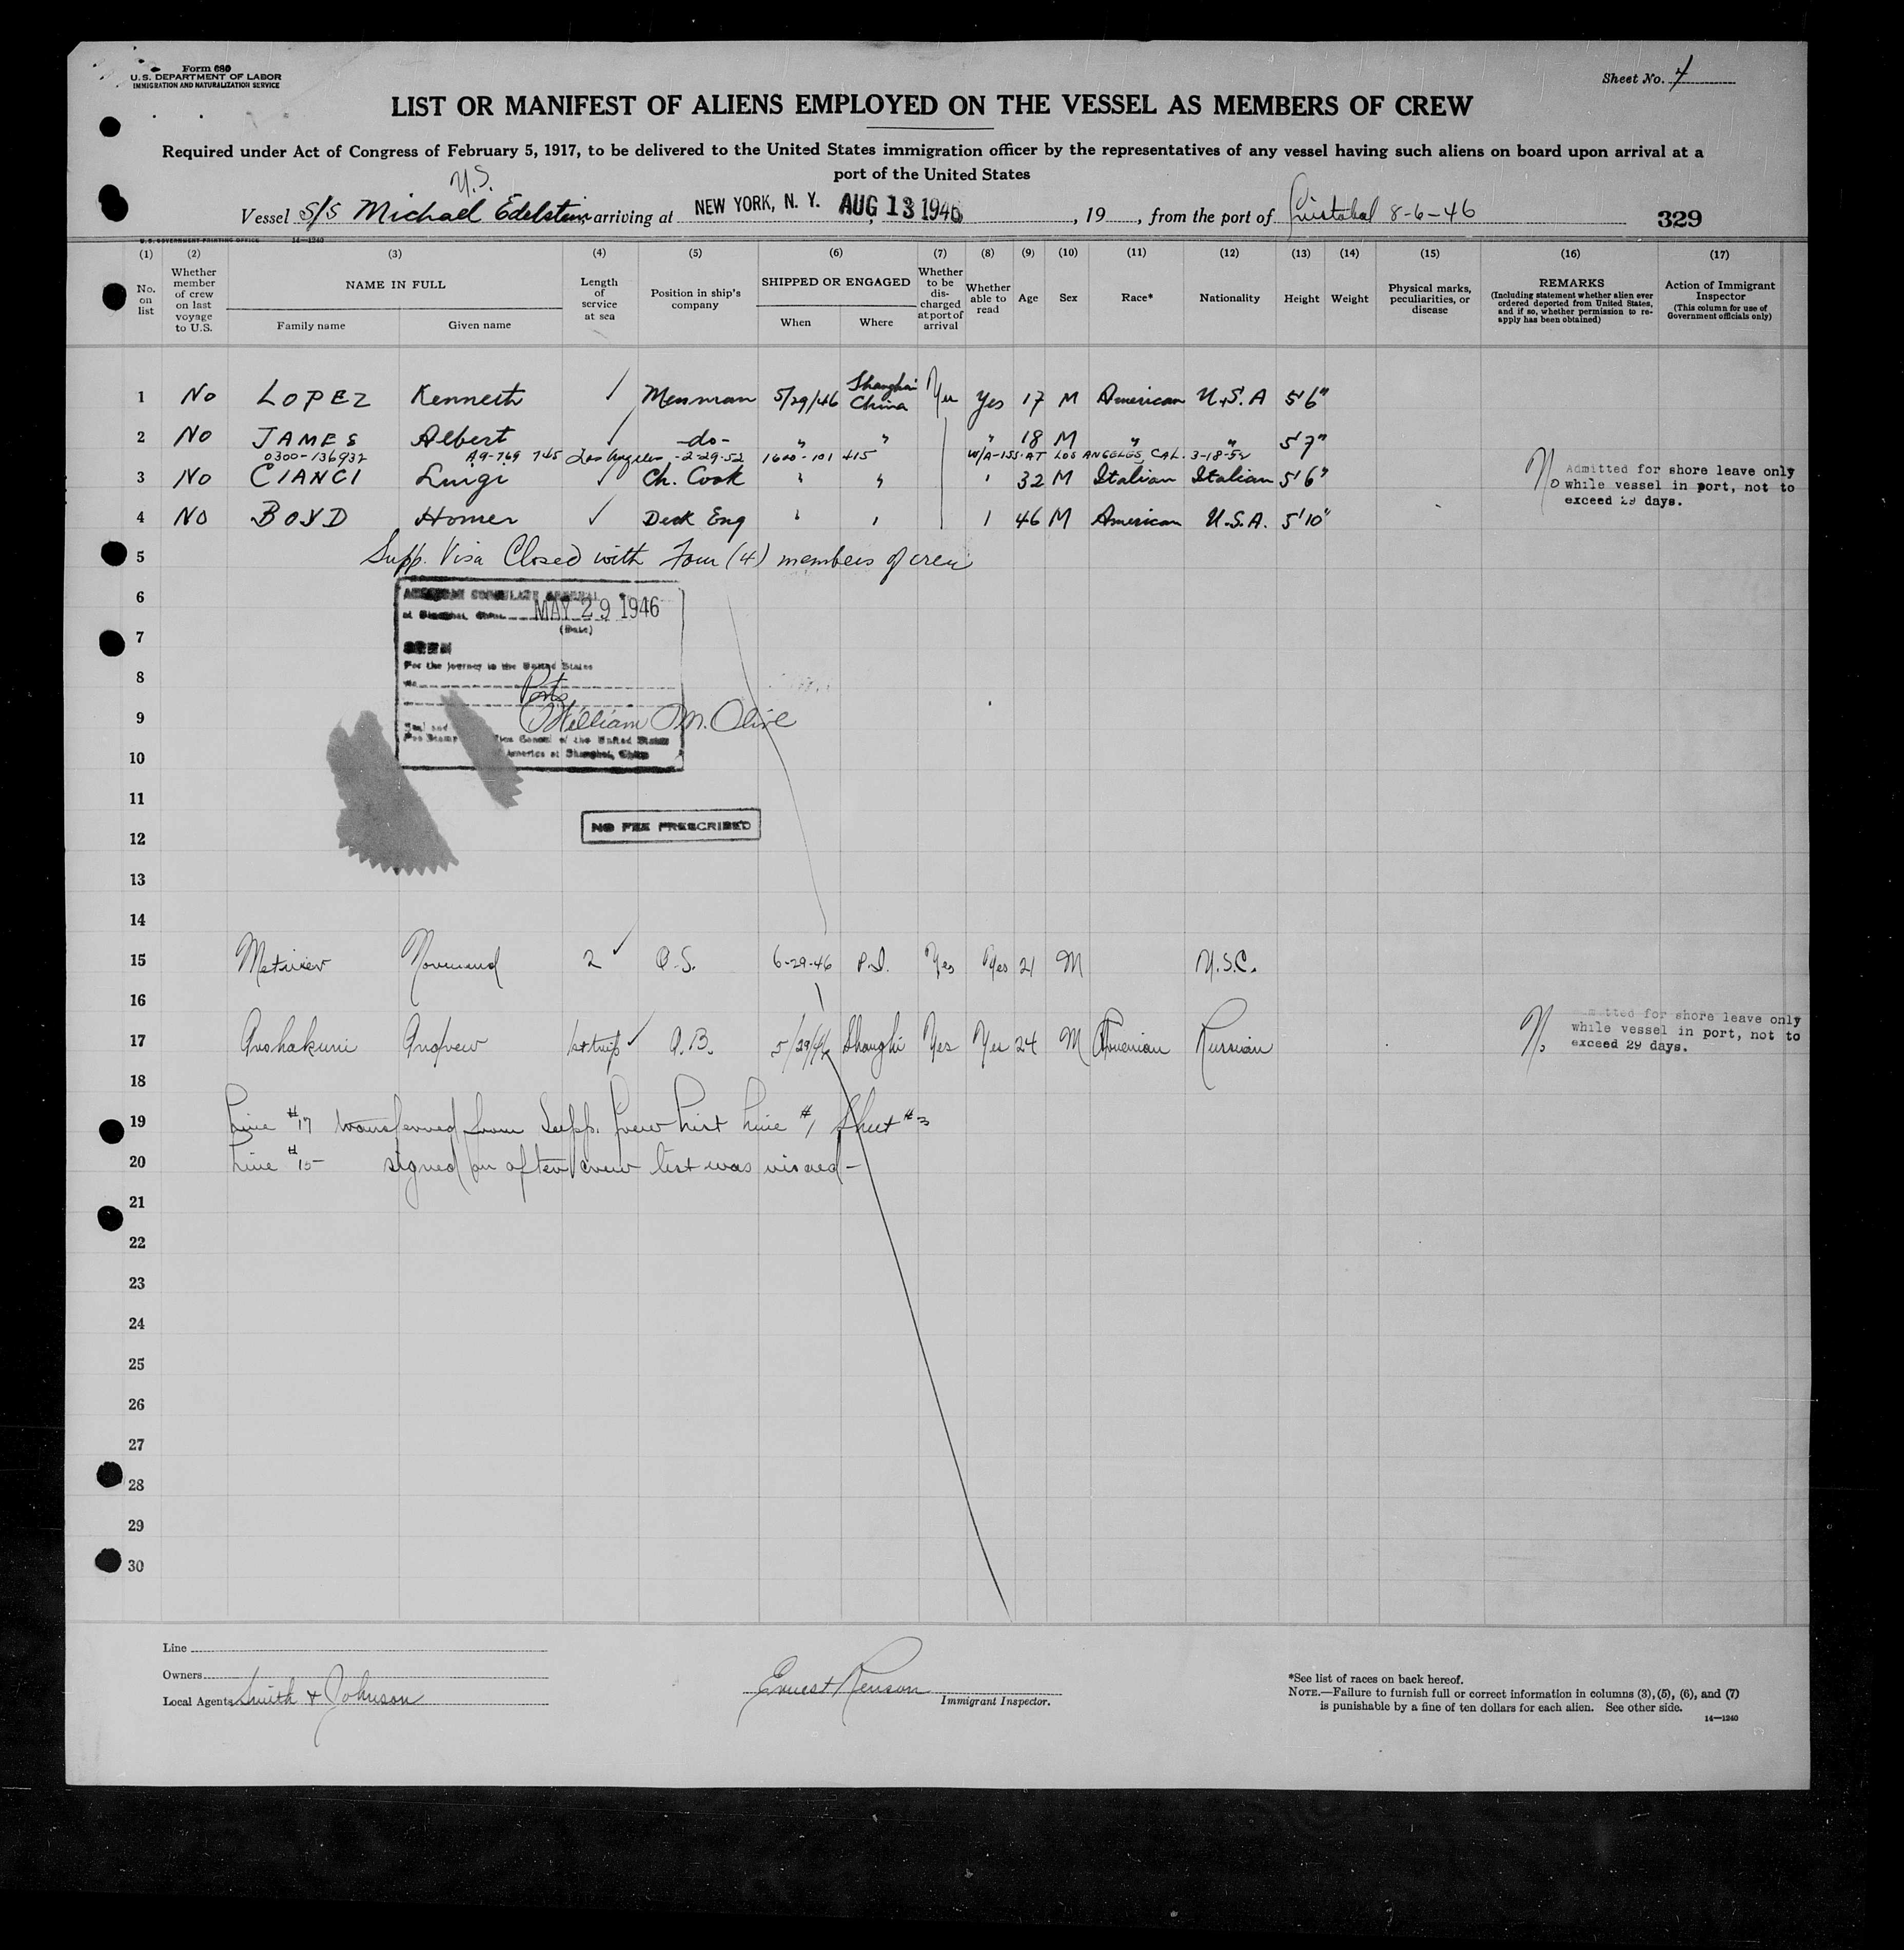 Form 680
U.S. DEPARTMENT OF LABOR
IMMIGRATION AND NATURALIZATION SERVICE
Sheet No. 4
LIST OR MANIFEST OF ALIENS EMPLOYED ON THE VESSEL AS MEMBERS OF CREW
Required under Act of Congress of February 5, 1917, to be delivered to the United States immigration officer by the representatives of any vessel having such aliens on board upon arrival at a
port of the United States
U.S.
Vessel S/S Michael Edelstein, arriving at NEW YORK, N. Y. AUG 13 1946, 19, from the port of Cristobal 8-6-46 329
U.S. GOVERNMENT PRINTING OFFICE 14—1240
(1) (2) (3) (4) (5) (6) (7) (8) (9) (10) (11) (12) (13) (14) (15) (16) (17)
No. on list
Whether member of crew on last voyage to U.S.
NAME IN FULL
Family name Given name
Length of service at sea
Position in ship's company
SHIPPED OR ENGAGED
When Where
Whether to be discharged at port of arrival
Whether able to read
Age Sex Race* Nationality Height Weight
Physical marks, peculiarities, or disease
REMARKS
(Including statement whether alien ever ordered deported from United States, and if so, whether permission to reapply has been obtained)
Action of Immigrant Inspector
(This column for use of Government officials only)
1 No LOPEZ Kenneth Messman 5/29/46 Shanghai China Yes Yes 17 M American U.S.A 5'6"
2 No JAMES Albert -do- " " " 18 M " " 5'7"
0300-136932 A9-769 745 Los Angeles -2-29-52 1600-101 415 W/A-ISS. AT LOS ANGELES, CAL. 3-18-52
3 No CIANCI Luigi Ch. Cook " " " 32 M Italian Italian 5'6" No Admitted for shore leave only
while vessel in port, not to
exceed 29 days.
4 NO BOYD Homer Deck Eng " " " 46 M American U.S.A. 5'10"
5 Supp. Visa Closed with Four (4) members of crew
6 AMERICAN CONSULATE GENERAL
at Shanghai, China MAY 29 1946
(Date)
7 SEEN
For the journey to the United States
8
9 William M. Olive
Seal and
Fee Stamp Vice Consul of the United States
10 America at Shanghai, China
11
12 NO FEE PRESCRIBED
13
14
15 Metivier Normand 2 O.S. 6-29-46 P.I. Yes Yes 21 M U.S.C.
16
17 Arshakuni Andrew 1st trip A.B. 5/29/46 Shanghi Yes Yes 24 M Armenian Russian No Admitted for shore leave only
while vessel in port, not to
exceed 29 days.
18
19 Line #17 transferred from Supp. Crew List Line #1 Sheet #3
20 Line #15 signed on after crew list was visaed -
21
22
23
24
25
26
27
28
29
30
Line
Owners
Local Agents Smith & Johnson
Ernest Renson
Immigrant Inspector.
*See list of races on back hereof.
NOTE.—Failure to furnish full or correct information in columns (3), (5), (6), and (7)
is punishable by a fine of ten dollars for each alien. See other side.
14—1240